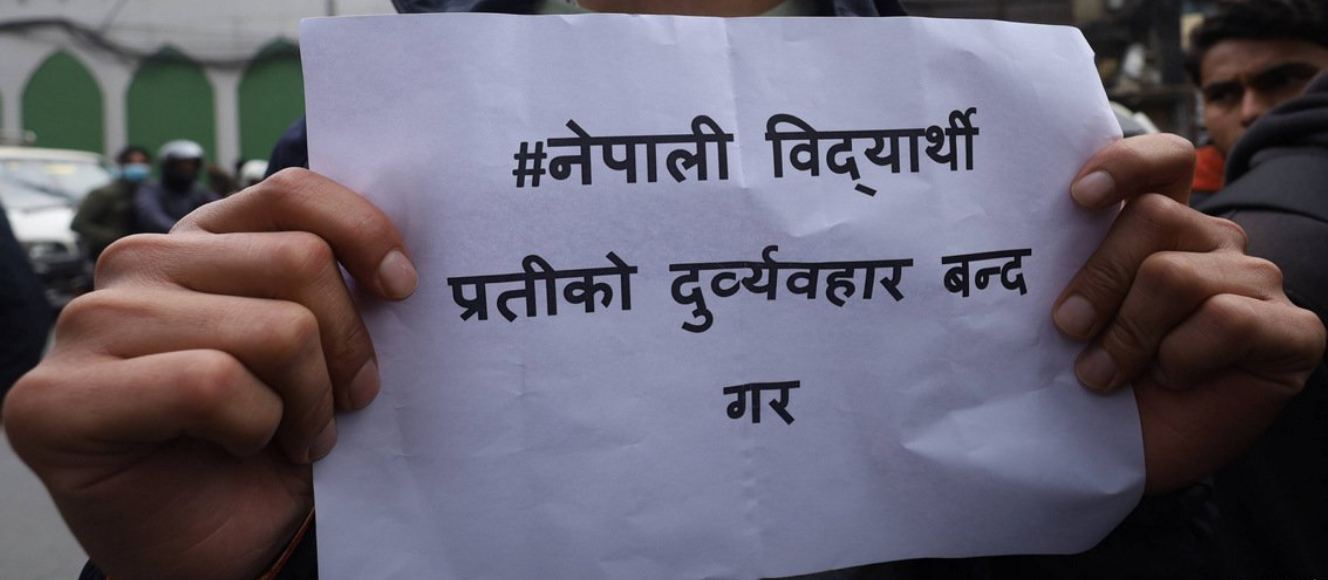 #नेपाली विद्‌यार्थी
प्रतीको दुर्व्यवहार बन्द
गर